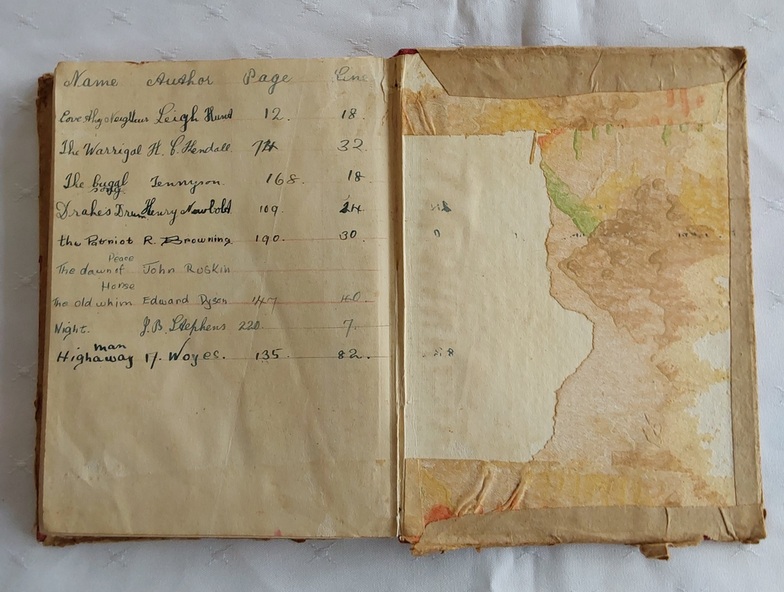 Name Author Page Line
Love thy Neighbour Leigh Hunt 12. 18.
The Warrigal H. C. Kendall. 74 32.
The buggl Tennyson. 168. 18.
song
Drakes Drum Henry Newbolt 109. 24
the Patriot R. Browning. 190. 30.
Peace
The dawn of John Ruskin
Horse
The old whim Edward Dyson 147 40.
Night. J.B. Stephens 220. 7.
man
Highaway A. Noyes. 135. 82.